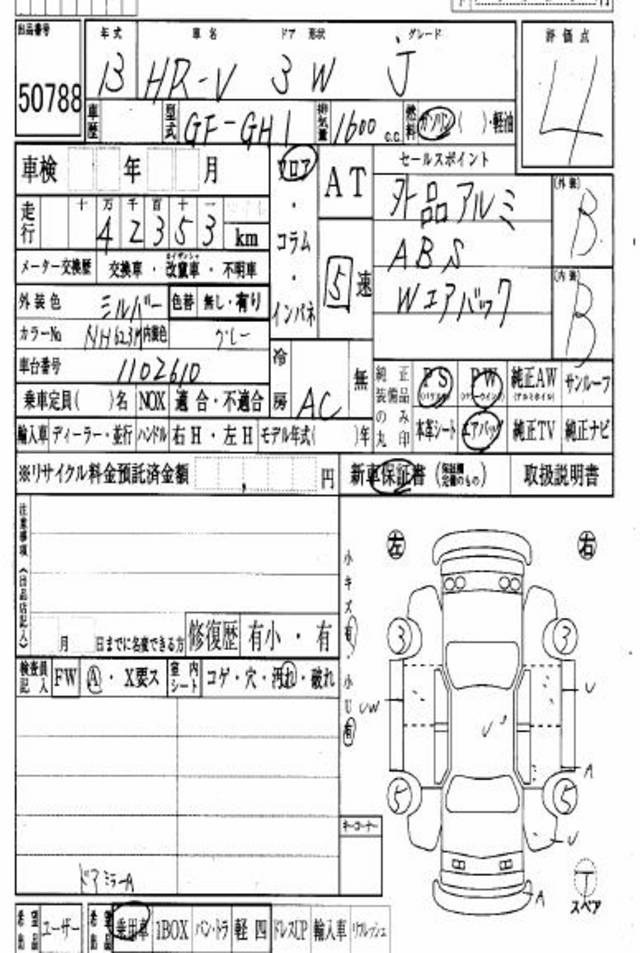 出品番号 年式 車名 ドア 形状 グレード 評価点
50788 13 HR-V 3 W j 4
車歴 型式 GF-GH1 排気量 1600 c.c. 燃料 ガソリン( )・軽油
車検 年 月 フロア・コラム・インパネ AT 5速 セールスポイント
走行 十万千百十一 42353 km 外品アルミ (外装) B
メーター交換歴 交換車・改竄車・不明車 ABS
外装色 シルバー 色替 無し・有り Wエアバック (内装) B
カラーNo NH623M 内装色 グレー
車台番号 1102610 冷房 AC 無 純正装備品のみ丸印 PS PW 純正AW サンルーフ
乗車定員( )名 NOX 適合・不適合 本革シート エアバッグ 純正TV 純正ナビ
輸入車 ディーラー・並行 ハンドル 右H・左H モデル年式( )年
※リサイクル料金預託済金額 , 円 新車保証書 (保証書定備のもの) 取扱説明書
注意事項(出品店記入) 左 右
小キズ 有・小U 有
月 日までに名変できる方 修復歴 有小・有
3 3
検査員記入 FW A・X要ス 室内シート コゲ・穴・汚れ・破れ
UW U U
5 5 A
キーコーナー U
ドアミラーA A
T スペア
希望出品 ユーザー 希望出品 乗用車 1BOX バン・トラ 軽四 ドレスUP 輸入車 リフレッシュ